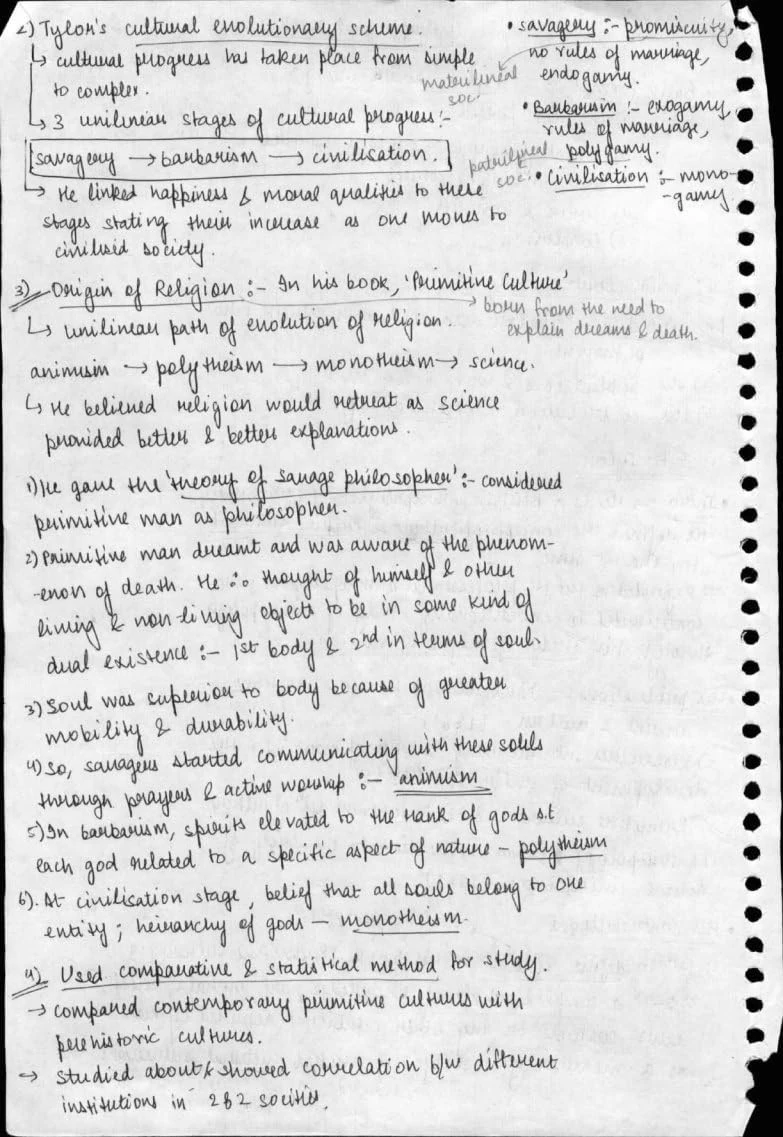 2) Tylor's cultural evolutionary scheme.
↳ cultural progress has taken place from simple
to complex.
↳ 3 unilinear stages of cultural progress:-
savagery → barbarism → civilisation.
↳ He linked happiness & moral qualities to these
stages stating their increase as one moves to
civilised society.
• savagery :- promiscuity,
no rules of marriage,
endogamy.
matrilineal
soc.
• Barbarism :- exogamy,
rules of marriage,
polygamy.
patrilineal
soc.
• Civilisation :- mono-
-gamy.
3) Origin of Religion :- In his book, 'Primitive Culture'
→ born from the need to
explain dreams & death.
↳ unilinear path of evolution of religion.
animism → polytheism → monotheism → science.
↳ He believed religion would retreat as science
provided better & better explanations.
1) He gave the 'theory of savage philosopher' :- considered
primitive man as philosopher.
2) Primitive man dreamt and was aware of the phenom-
-enon of death. He ∴ thought of himself & other
living & non-living objects to be in some kind of
dual existence :- 1st body & 2nd in terms of soul.
3) Soul was superior to body because of greater
mobility & durability.
4) So, savagers started communicating with these souls
through prayers & active worship :- animism
5) In barbarism, spirits elevated to the rank of gods s.t.
each god related to a specific aspect of nature - polytheism
6). At civilisation stage, belief that all souls belong to one
entity ; heirarchy of gods - monotheism.
4). Used comparative & statistical method for study.
→ compared contemporary primitive cultures with
prehistoric cultures.
→ studied about / showed correlation b/w different
institutions in 282 socities.